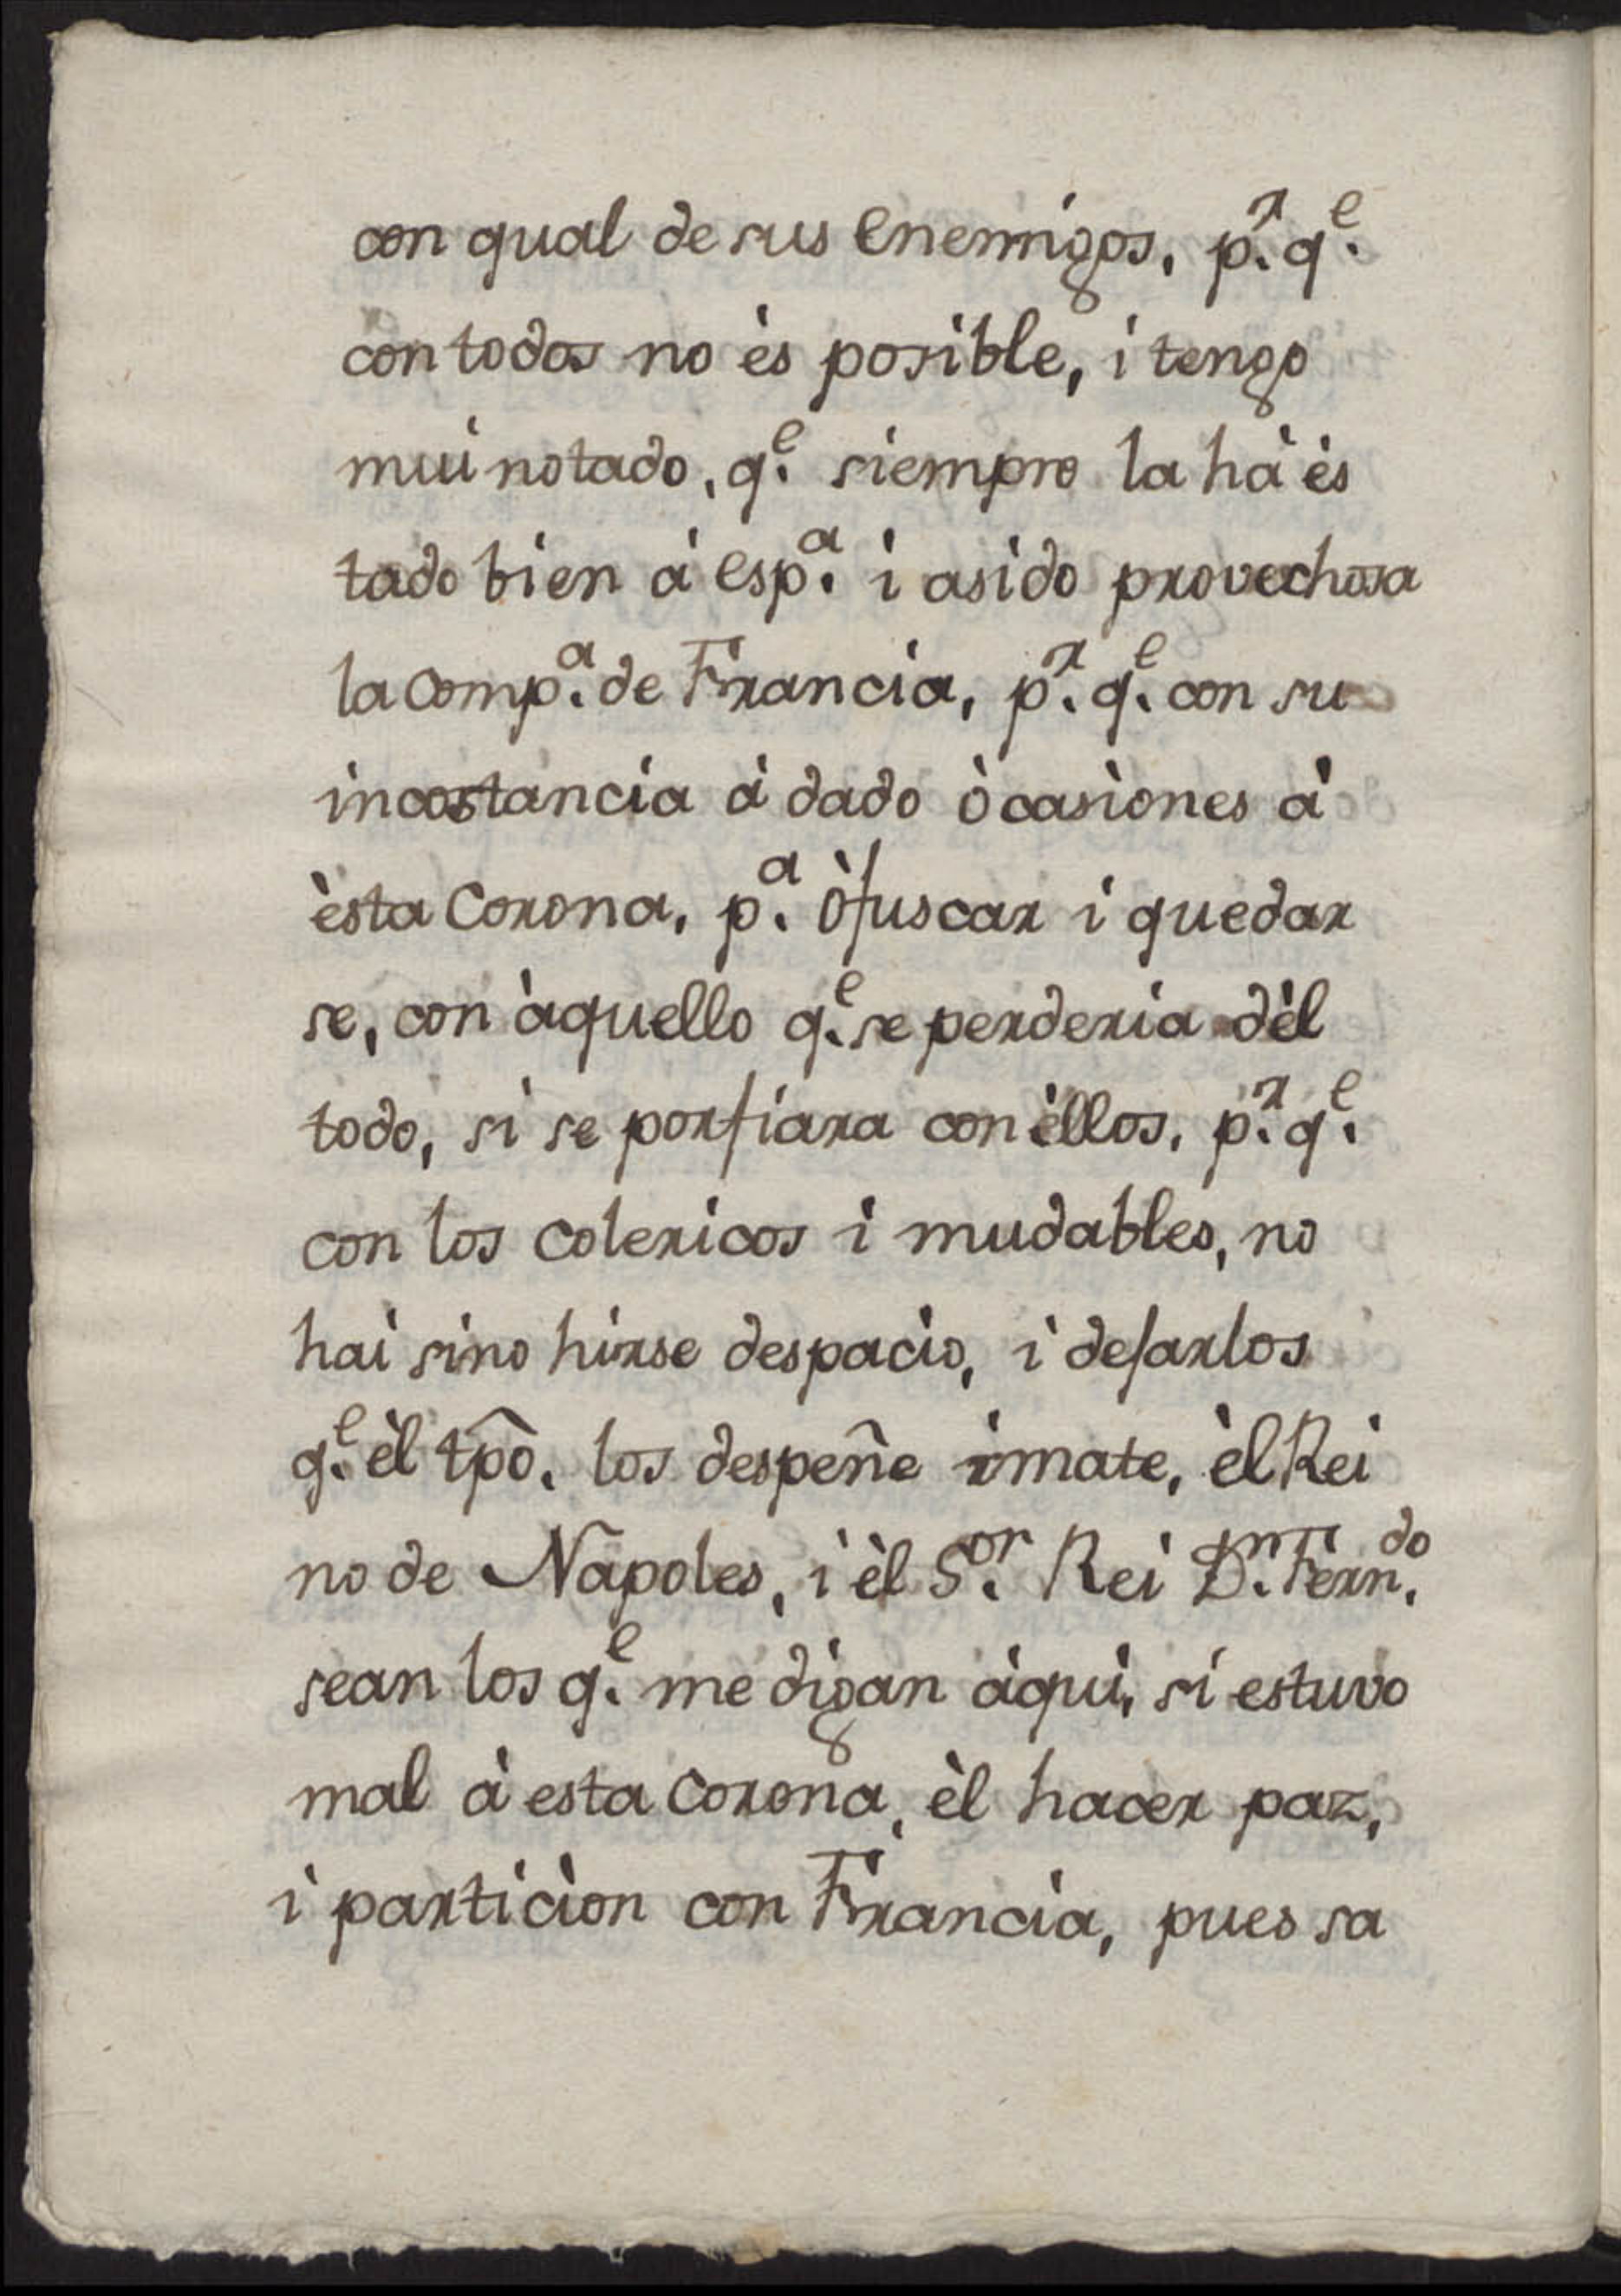 con qual de sus enemigos, p.^r q.^e
con todos no ès posible, i tengo
mui notado, q.^e siempre la hà ès
tado bien à esp.^a i asido provechosa
la comp.^a de Francia, p.^r q.^e con su
incostancia à dado òcasiones à
èsta Corona, p.^a òfuscar i quedar
se, con àquello q.^e se perderia dèl
todo, si se porfiara con èllos, p.^r q.^e
con los colericos i mudables, no
hai sino hirse despacio, i dejarlos
q.^e èl tpô. los despeñe imate, èl Rei
no de Napoles, i èl S.^or Rei D.^n Fern.^do
sean los q.^e me digan àqui, si estuvo
mal à esta Corona, èl hacer paz,
i particion con Francia, pues sa